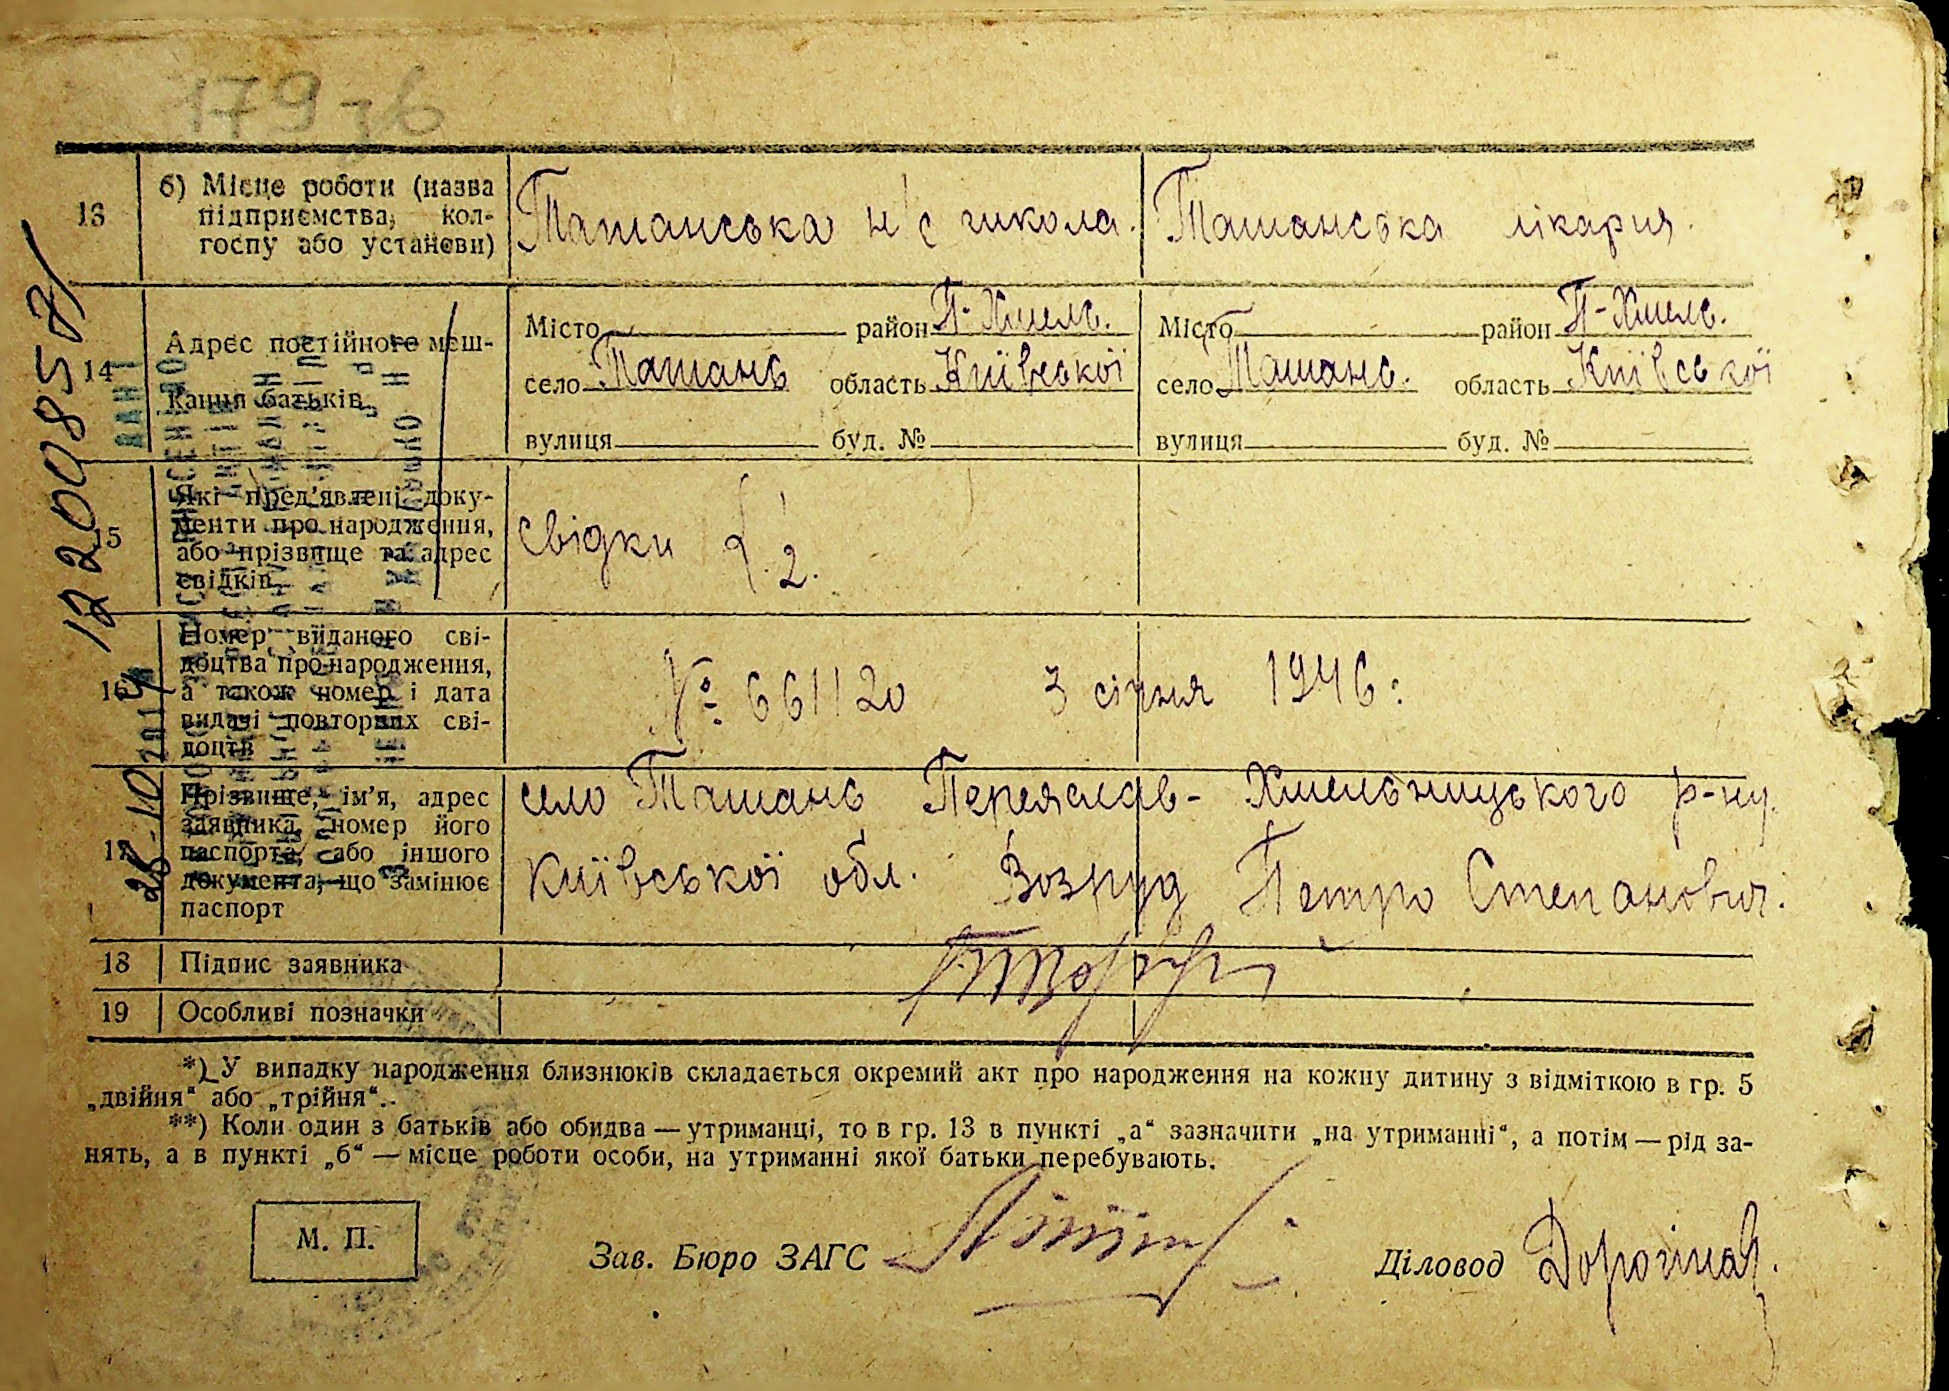 179 зб
13
б) Місце роботи (назва
підприємства, кол-
госпу або установи)
Ташанська н/с школа.
Ташанська лікарня.
14
Адрес постійного меш-
кання батьків
Місто район П-Хмель.
село Ташань область Київської
вулиця буд. №
Місто район П-Хмель.
село Ташань. область Київської
вулиця буд. №
15
Які пред'явлені доку-
менти про народження,
або прізвище та адрес
свідків
свідки 1.
2.
16
Номер виданого сві-
доцтва про народження,
а також номер і дата
видачі повторних сві-
доцтв
№ 661120 3 січня 1946:
17
Прізвище, ім'я, адрес
заявника, номер його
паспорта, або іншого
документа, що замінює
паспорт
село Ташань Переяслав-Хмельницького р-ну.
Київської обл. Возруд Петро Степанович.
18
Підпис заявника
19
Особливі позначки
*) У випадку народження близнюків складається окремий акт про народження на кожну дитину з відміткою в гр. 5
„двійня“ або „трійня“.
**) Коли один з батьків або обидва — утриманці, то в гр. 13 в пункті „а“ зазначити „на утриманні“, а потім — рід за-
нять, а в пункті „б“ — місце роботи особи, на утриманні якої батьки перебувають.
М. П.
Зав. Бюро ЗАГС
Діловод
12200857
28-10 2014